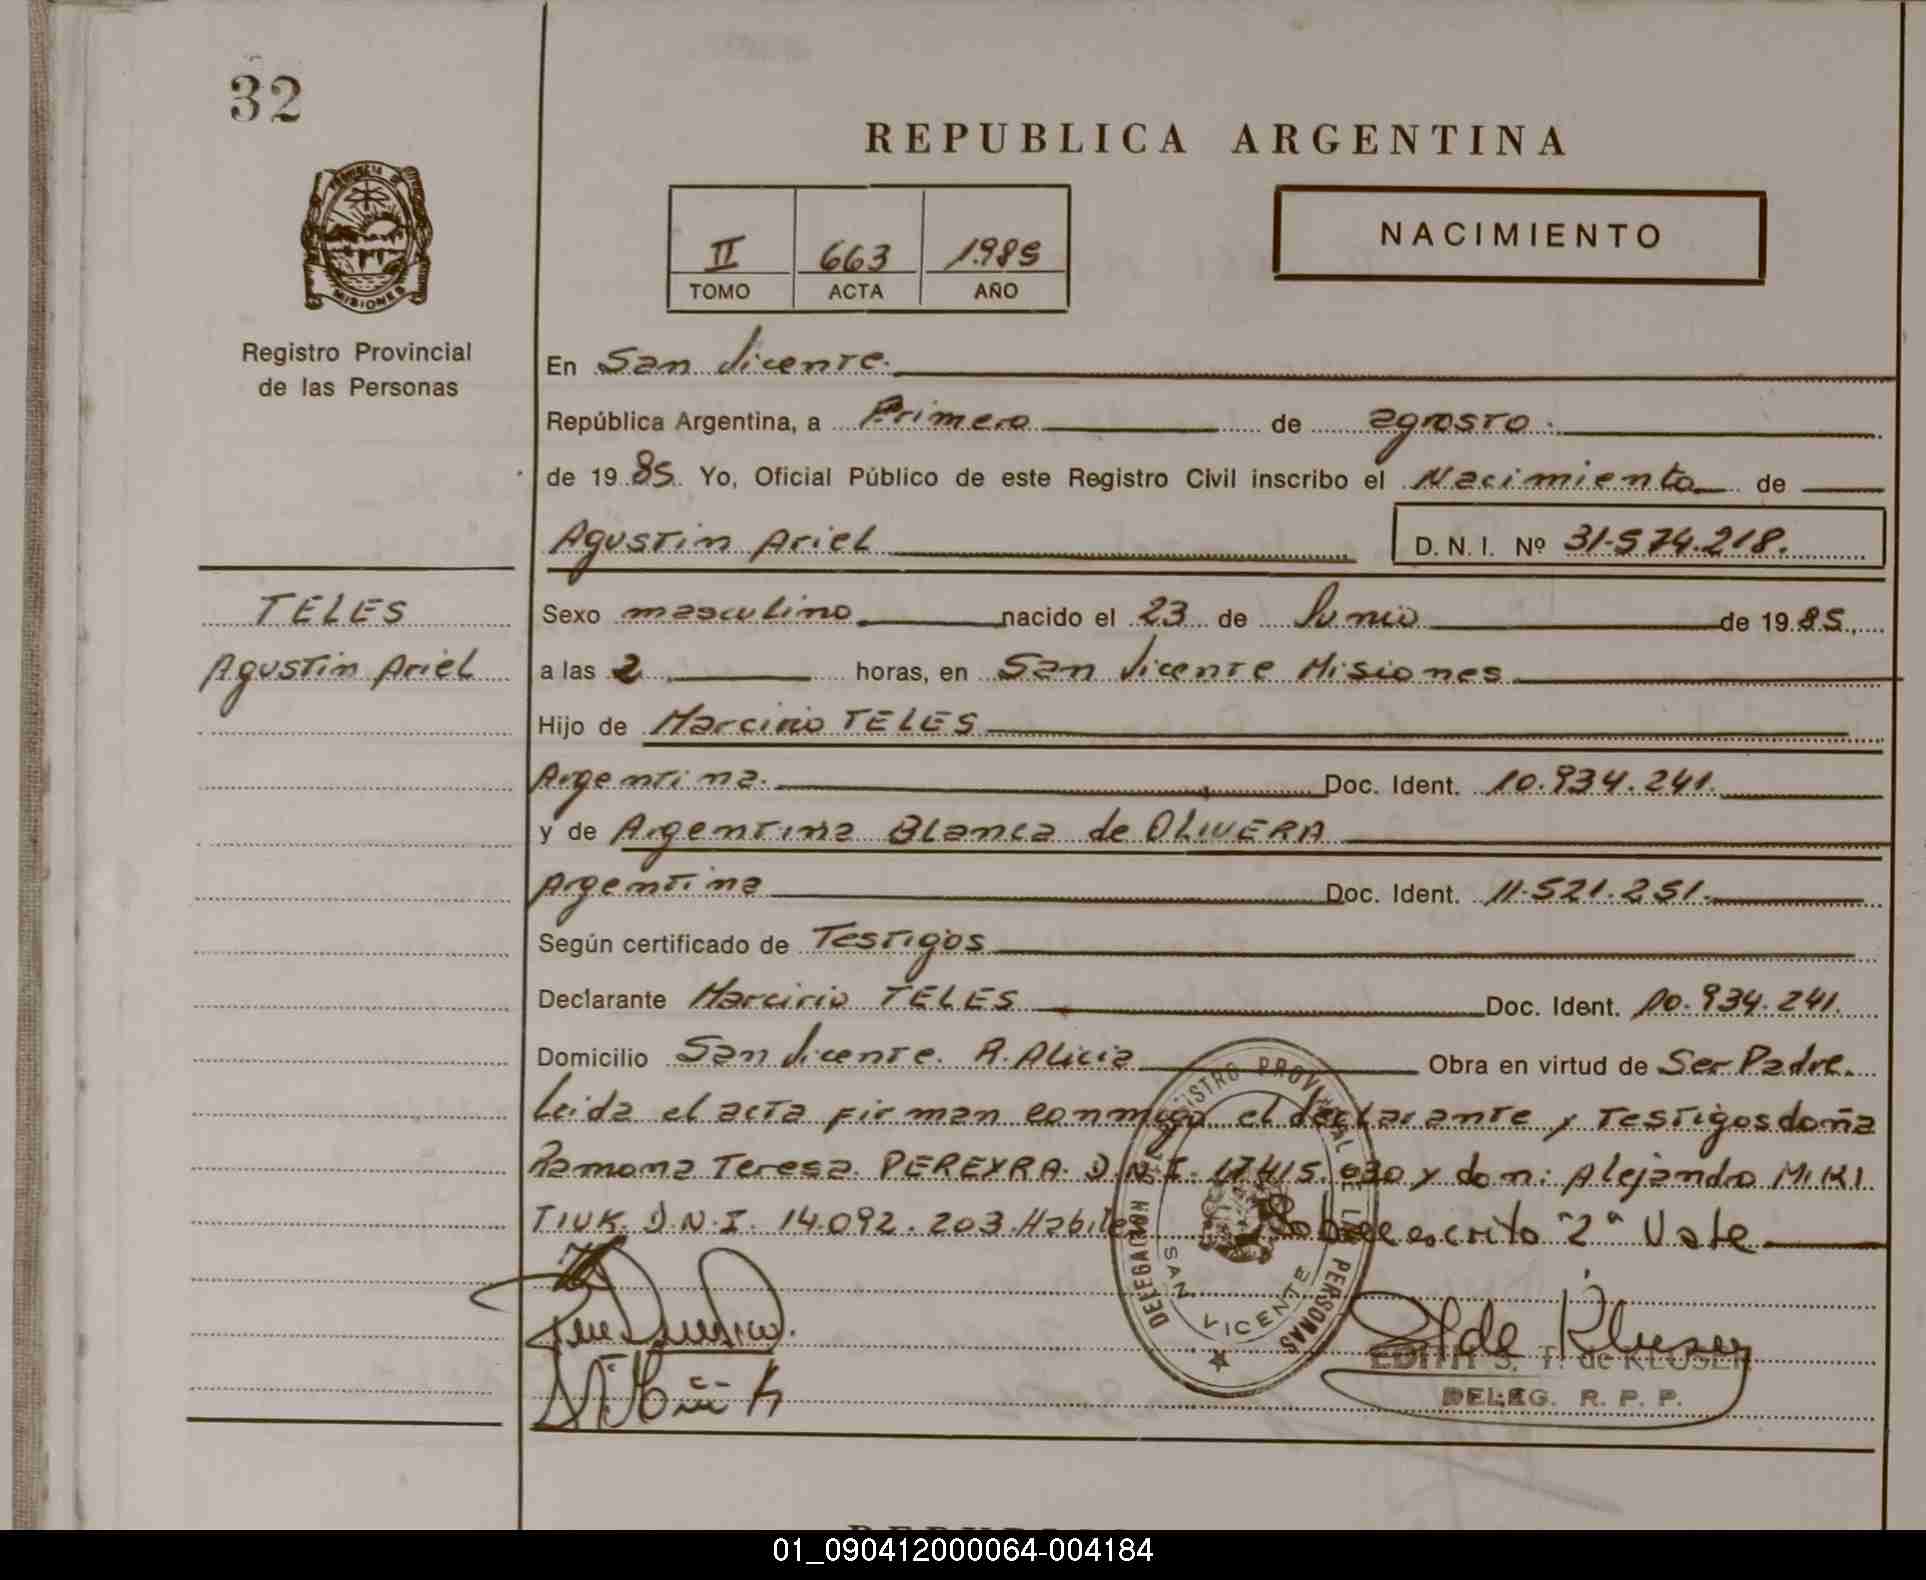 32
REPUBLICA ARGENTINA
PROVINCIA DE
MISIONES
II 663 1.985
TOMO ACTA AÑO
NACIMIENTO
Registro Provincial
de las Personas
En San Vicente.
República Argentina, a Primero de agosto.
de 19 85. Yo, Oficial Público de este Registro Civil inscribo el Nacimiento de
Agustin Ariel D. N. I. Nº 31.574.218.
TELES
Agustin Ariel
Sexo masculino nacido el 23 de Junio de 19 85,
a las 2 horas, en San Vicente Misiones
Hijo de Marcirio TELES
Argentina. Doc. Ident. 10.934.241.
y de Argentina Blanca de OLIVERA
Argentina Doc. Ident. 11.521.251.
Según certificado de Testigos
Declarante Marcirio TELES Doc. Ident. 10.934.241.
Domicilio San Vicente. A. Alicia Obra en virtud de Ser Padre.
Leida el acta firman conmigo el declarante y testigos doña
Ramona Teresa PEREYRA. D.N.I. 17.415.030 y don: Alejandro MIKI
TIUK. D.N.I. 14.092.203. Habiles Sobreescrito "2" Vale
DELEGACION REGISTRO PROVINCIAL DE LAS PERSONAS
SAN VICENTE
S. de Kluser
EDITH S. T. de KLUSER
DELEG. R. P. P.
01_090412000064-004184